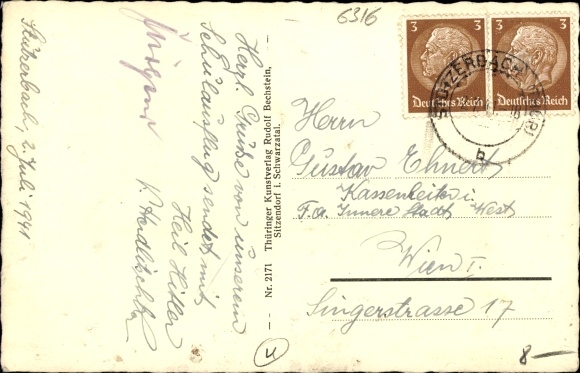 6316
Stützerbach, 2. Juli 1941
Herzl. Grüße von unserem
Schulausflug sendet mit
Heil Hitler
Nr. 2171 Thüringer Kunstverlag Rudolf Bechstein,
Sitzendorf i. Schwarzatal.
3 3
Deutsches Reich Deutsches Reich
STÜTZERBACH
b
Herrn
Gustav Ehnert
Kassenleiter i.
F.A. Innere Stadt West
Wien I.
Singerstrasse 17
8-